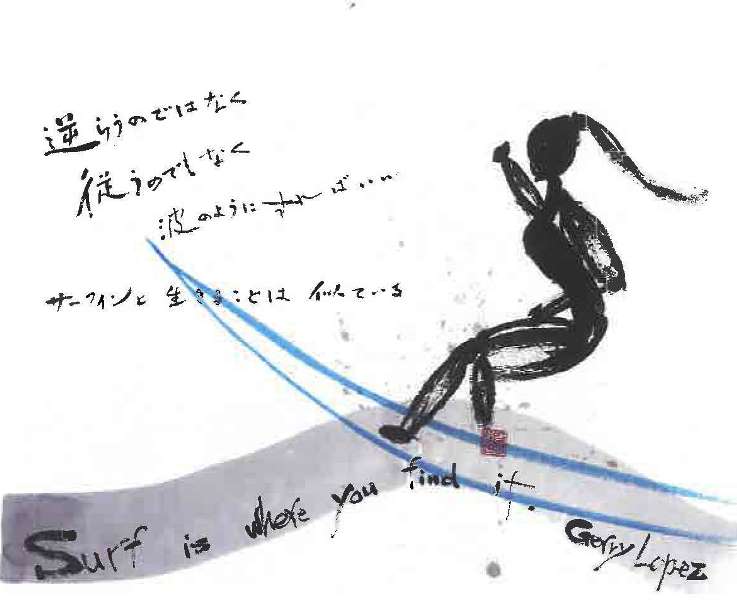 逆らうのではなく
従うのでもなく
波のように すればいい
サーフィンと 生きることは 似ている
Surf is where you find it.
Gerry Lopez